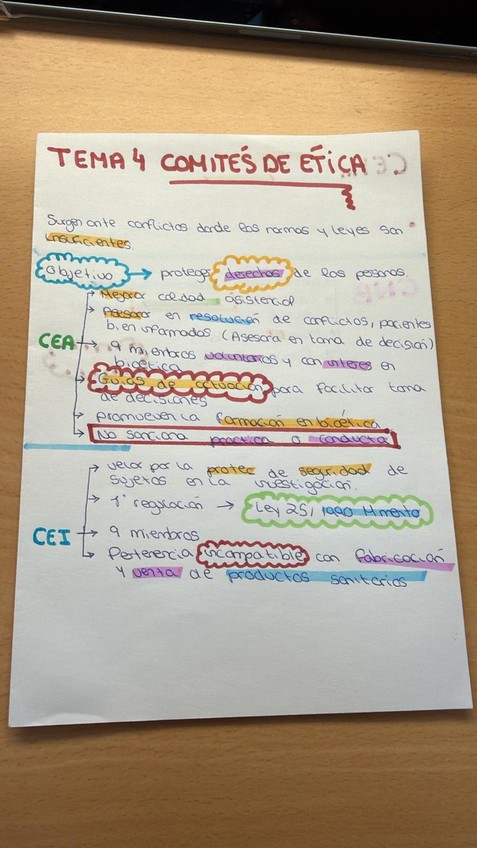 TEMA 4 COMITÉS DE ÉTICA
Surgen ante conflictos donde las normas y leyes son
insuficientes.
Objetivo → proteger derechos de las personas
Mejorar calidad asistencial
Asesorar en resolución de conflictos, pacientes
bien informados (Asesora en toma de decisión)
CEA
9 miembros voluntarios y con interes en
bioética
Guias de actuación para facilitar toma
de decisiones
promueven la formación en bioética
No sanciona practica o conducta
velar por la protec de seguridad de
sujetos en la investigación.
1ª regulación → Ley 25/1990 Mmento
CEI
9 miembros
Pertenencia incompatible con fabricación
y venta de productos sanitarios